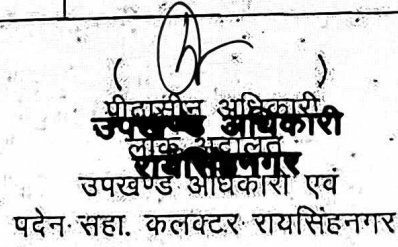 ( )
पीठासीन अधिकारी
उपखण्ड अधिकारी
लोक अदालत
रायसिंहनगर
उपखण्ड अधिकारी एवं
पदेन सहा. कलक्टर रायसिंहनगर